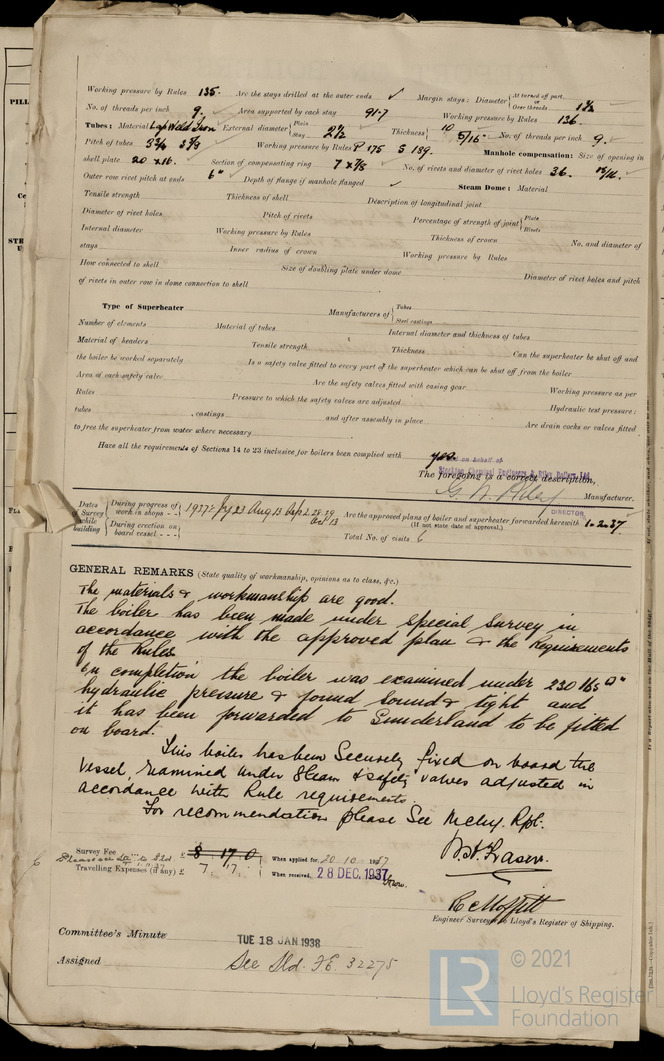 Working pressure by Rules 135. Are the stays drilled at the outer ends ✓ Margin stays: Diameter { At turned off part, or Over threads 1¾
No. of threads per inch 9. Area supported by each stay 91.7 Working pressure by Rules 136.
Tubes: Material Lap Weld Iron External diameter { Plain Stay 2½ Thickness { 10 5/16" No. of threads per inch 9.
Pitch of tubes 3¾ 3⅞ Working pressure by Rules P 175 S 189. Manhole compensation: Size of opening in
shell plate 20 x 16. Section of compensating ring 7 x ⅞ No. of rivets and diameter of rivet holes 36. 15/16.
Outer row rivet pitch at ends 6" Depth of flange if manhole flanged ✓ Steam Dome: Material
Tensile strength Thickness of shell Description of longitudinal joint
Diameter of rivet holes Pitch of rivets Percentage of strength of joint { Plate Rivets
Internal diameter Working pressure by Rules Thickness of crown No. and diameter of
stays Inner radius of crown Working pressure by Rules
How connected to shell Size of doubling plate under dome Diameter of rivet holes and pitch
of rivets in outer row in dome connection to shell
Type of Superheater Manufacturers of { Tubes Steel castings
Number of elements Material of tubes Internal diameter and thickness of tubes
Material of headers Tensile strength Thickness Can the superheater be shut off and
the boiler be worked separately Is a safety valve fitted to every part of the superheater which can be shut off from the boiler
Area of each safety valve Are the safety valves fitted with easing gear Working pressure as per
Rules Pressure to which the safety valves are adjusted Hydraulic test pressure:
tubes , castings and after assembly in place Are drain cocks or valves fitted
to free the superheater from water where necessary
Have all the requirements of Sections 14 to 23 inclusive for boilers been complied with yes.
on behalf of
The foregoing is a correct description,
Manufacturer.
DIRECTOR.
Dates of Survey while building { During progress of work in shops - - 1937: Jy 23 Aug 13 Sep 2. 28. 29 Oct 13 Are the approved plans of boiler and superheater forwarded herewith 1-2-37.
(If not state date of approval.)
During erection on board vessel - - - Total No. of visits 6
GENERAL REMARKS (State quality of workmanship, opinions as to class, &c.)
The materials & workmanship are good.
The boiler has been made under special survey in
accordance with the approved plan & the Requirements
of the Rules.
On completion the boiler was examined under 230 lbs □"
hydraulic pressure & found sound & tight and
it has been forwarded to Sunderland to be fitted
on board.
This boiler has been Securely fixed on board the
Vessel, examined under steam & safety valves adjusted in
accordance with Rule requirements.
For recommendation please See Mchy. Rpt.
Survey Fee £ 8 : 17 : 0 When applied for, 20 10 1937
Travelling Expenses (if any) £ 7 : 7 : When received, 28 DEC. 1937
W.H. Fraser.
R C Moffitt
Engineer Surveyor to Lloyd's Register of Shipping.
Committee's Minute TUE 18 JAN 1938
Assigned See Sld. F.E. 32275
LR © 2021
Lloyd's Register
Foundation